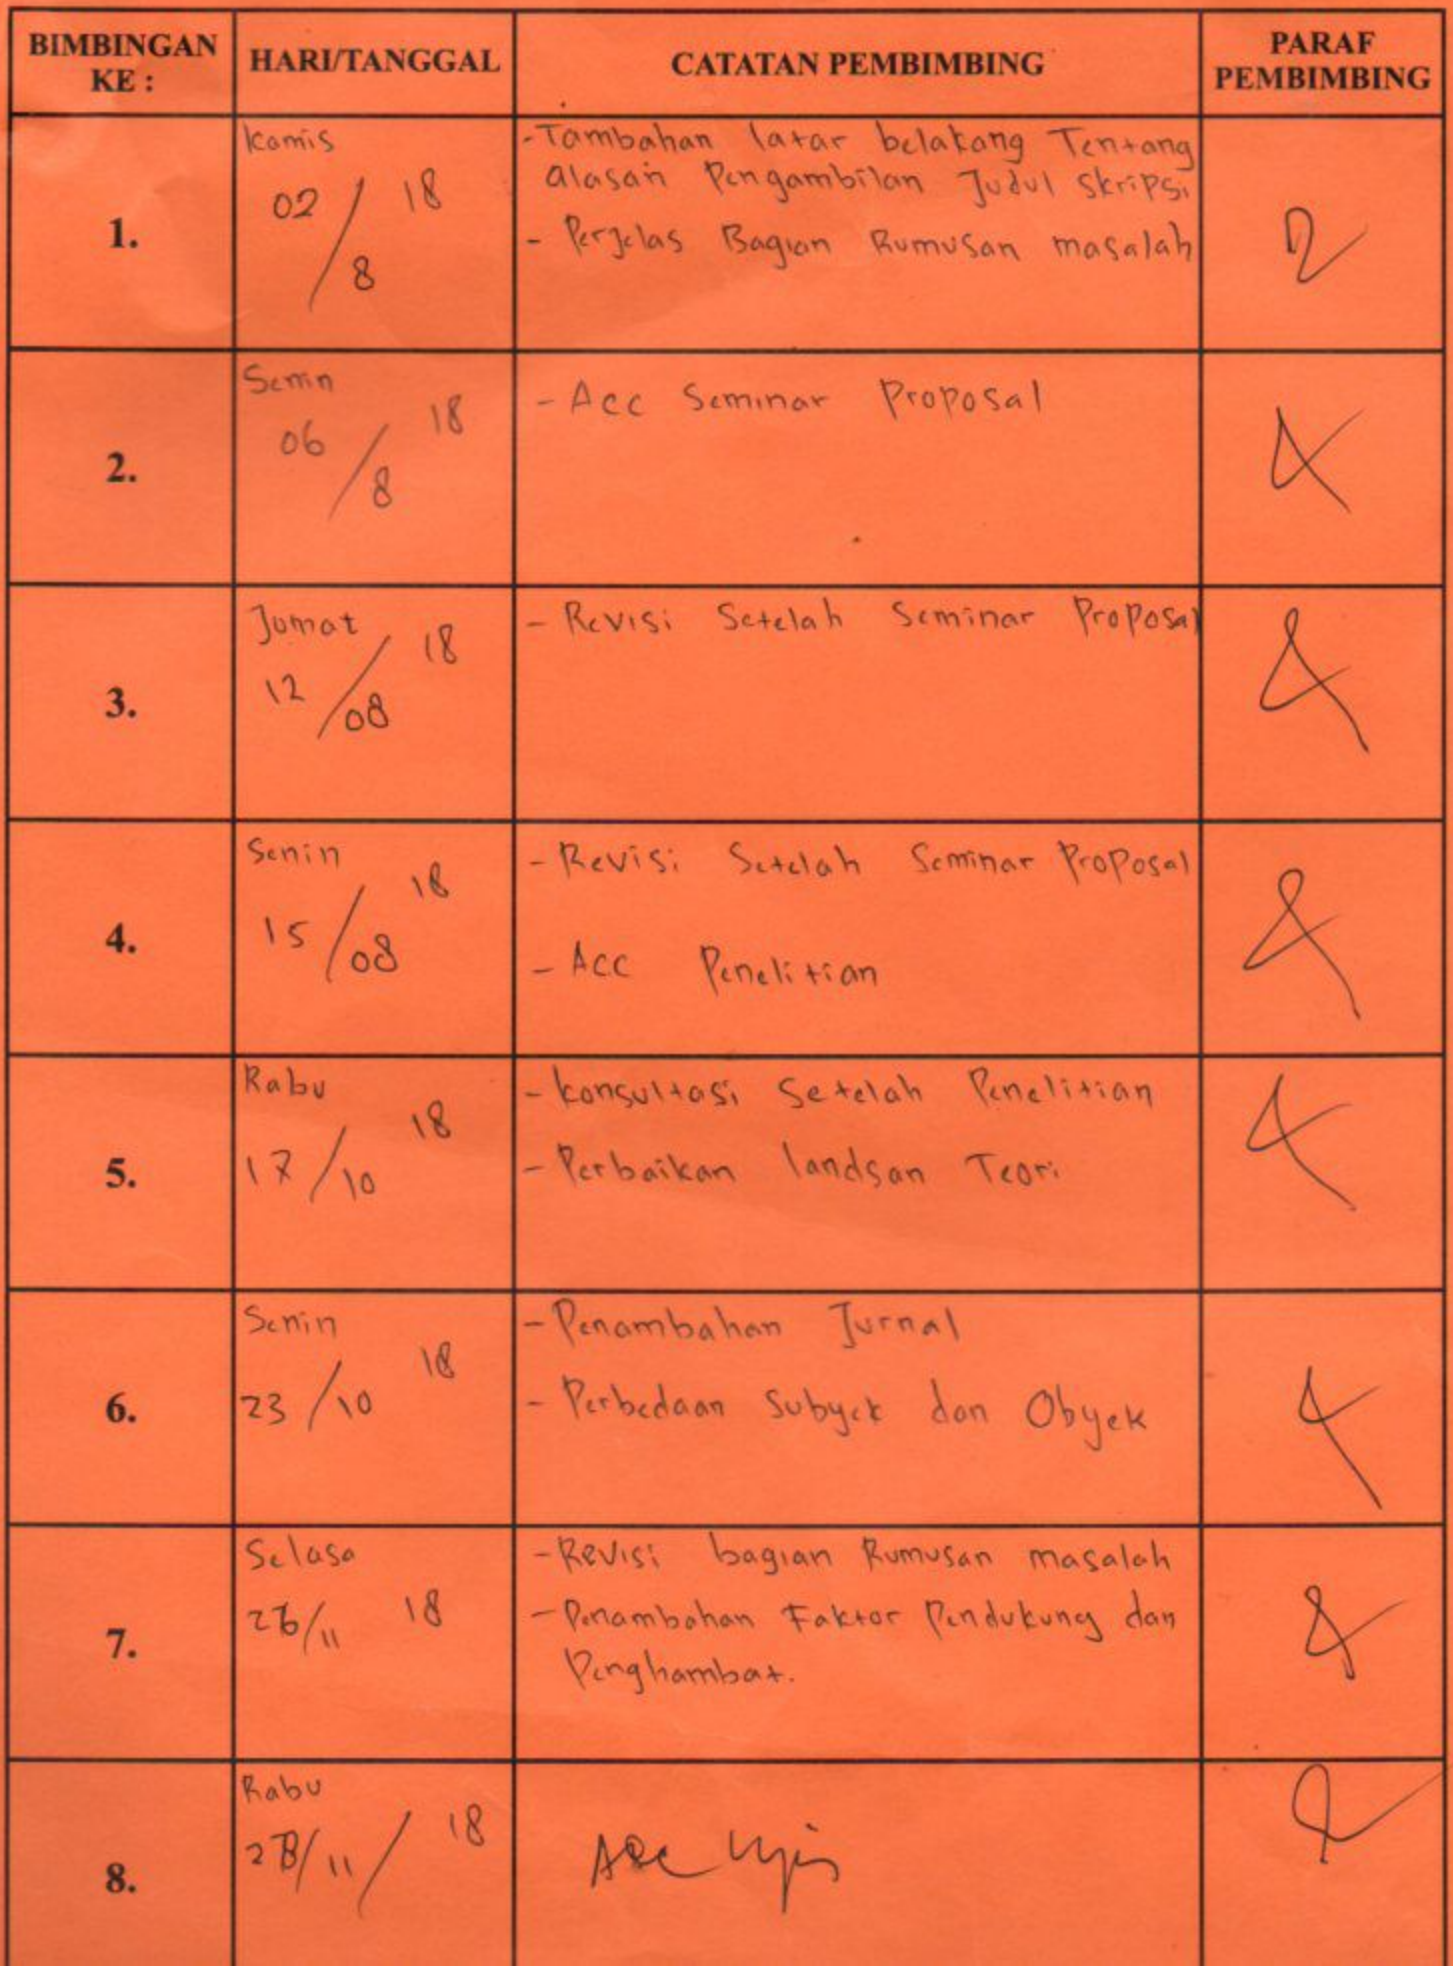 BIMBINGAN KE : HARI/TANGGAL CATATAN PEMBIMBING PARAF PEMBIMBING
1.
Kamis
02/8 18
- Tambahan latar belakang Tentang
alasan Pengambilan Judul Skripsi
- Perjelas Bagian Rumusan masalah
2.
Senin
06/8 18
- Acc Seminar Proposal
3.
Jumat
12/08 18
- Revisi Setelah Seminar Proposal
4.
Senin
15/08 18
- Revisi Setelah Seminar Proposal
- Acc Penelitian
5.
Rabu
17/10 18
- Konsultasi Setelah Penelitian
- Perbaikan landsan Teori
6.
Senin
23/10 18
- Penambahan Jurnal
- Perbedaan Subyek dan Obyek
7.
Selasa
/11 18
- Revisi bagian Rumusan masalah
- Penambahan Faktor Pendukung dan
Penghambat.
8.
Rabu
28/11/18
Acc Ujian